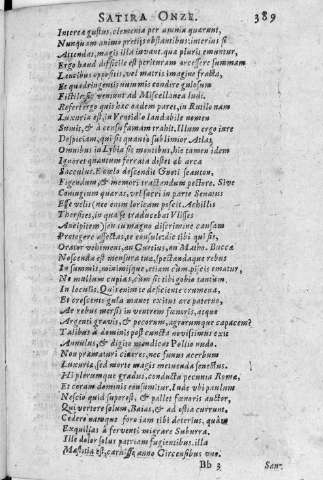 SATIRA ONZE. 389
Interea gustus, elementa per omnia quærunt,
Nunquam animo pretijs obstantibus: interius si
Attendas, magis illa iuvant, quæ pluris emuntur,
Ergo haud difficile est perituram arcessere summam
Lancibus oppositis, vel matris imagine fracta,
Et quadringentis nummis condire gulosum
Fictile: sic veniunt ad Miscellanea ludi.
Refert ergo quis hæc eadem paret, in Rutilo nam
Luxuria est, in Ventidio laudabile nomen
Sumit, & à censu famam trahit. Illum ergo iure
Despiciam, qui sit quanto sublimior Atlas,
Omnibus in Lybia sit montibus, hic tamen idem
Ignoret quantum ferrata distet ab arca
Sacculus. E cœlo descendit Gnoti seauton,
Figendum, & memori tractandum pectore. Sive
Coniugium quæras, vel sacri in parte Senatus
Esse velis (nec enim loricam poscit Achillis
Thersites, in qua se traducebat Ulisses
Ancipitem) seu tu magno discrimine causam
Protegere affectas, te consule: dic tibi qui sis,
Orator vehimens, an Curtius, an Matho. Bucca
Noscenda est mensura tuæ, spectandaque rebus
In summis, minimisque, etiam cùm piscis emetur,
Ne mullum cupias, cùm sit tibi gobio tantùm
In loculis. Quis enim te deficiente crumena,
Et crescente gula manet exitus ære paterno,
Ac rebus mersis in ventrem fœnoris, atque
Argenti gravis, & pecorum, agrorumque capacem?
Talibus à dominis post cuncta novissimus exit
Annulus, & digito mendicat Pollio nudo.
Non præmaturi cineres, nec funus acerbum
Luxuriæ, sed morte magis metuenda senectus.
Hi plerumque gradus, conducta pecunia Romæ,
Et coram dominis consumitur. Inde ubi paulum
Nescio quid superest, & pallet fœnoris auctor,
Qui vertere solum, Baias, & ad ostia currunt.
Cedere namque foro iam sibi deterius, quàm
Exquilijs à ferventi migrare Suburra.
Ille dolor solus patriam fugientibus, illa
Mæstitia est, caruisse anno Circensibus uno.
Bb 3 San-